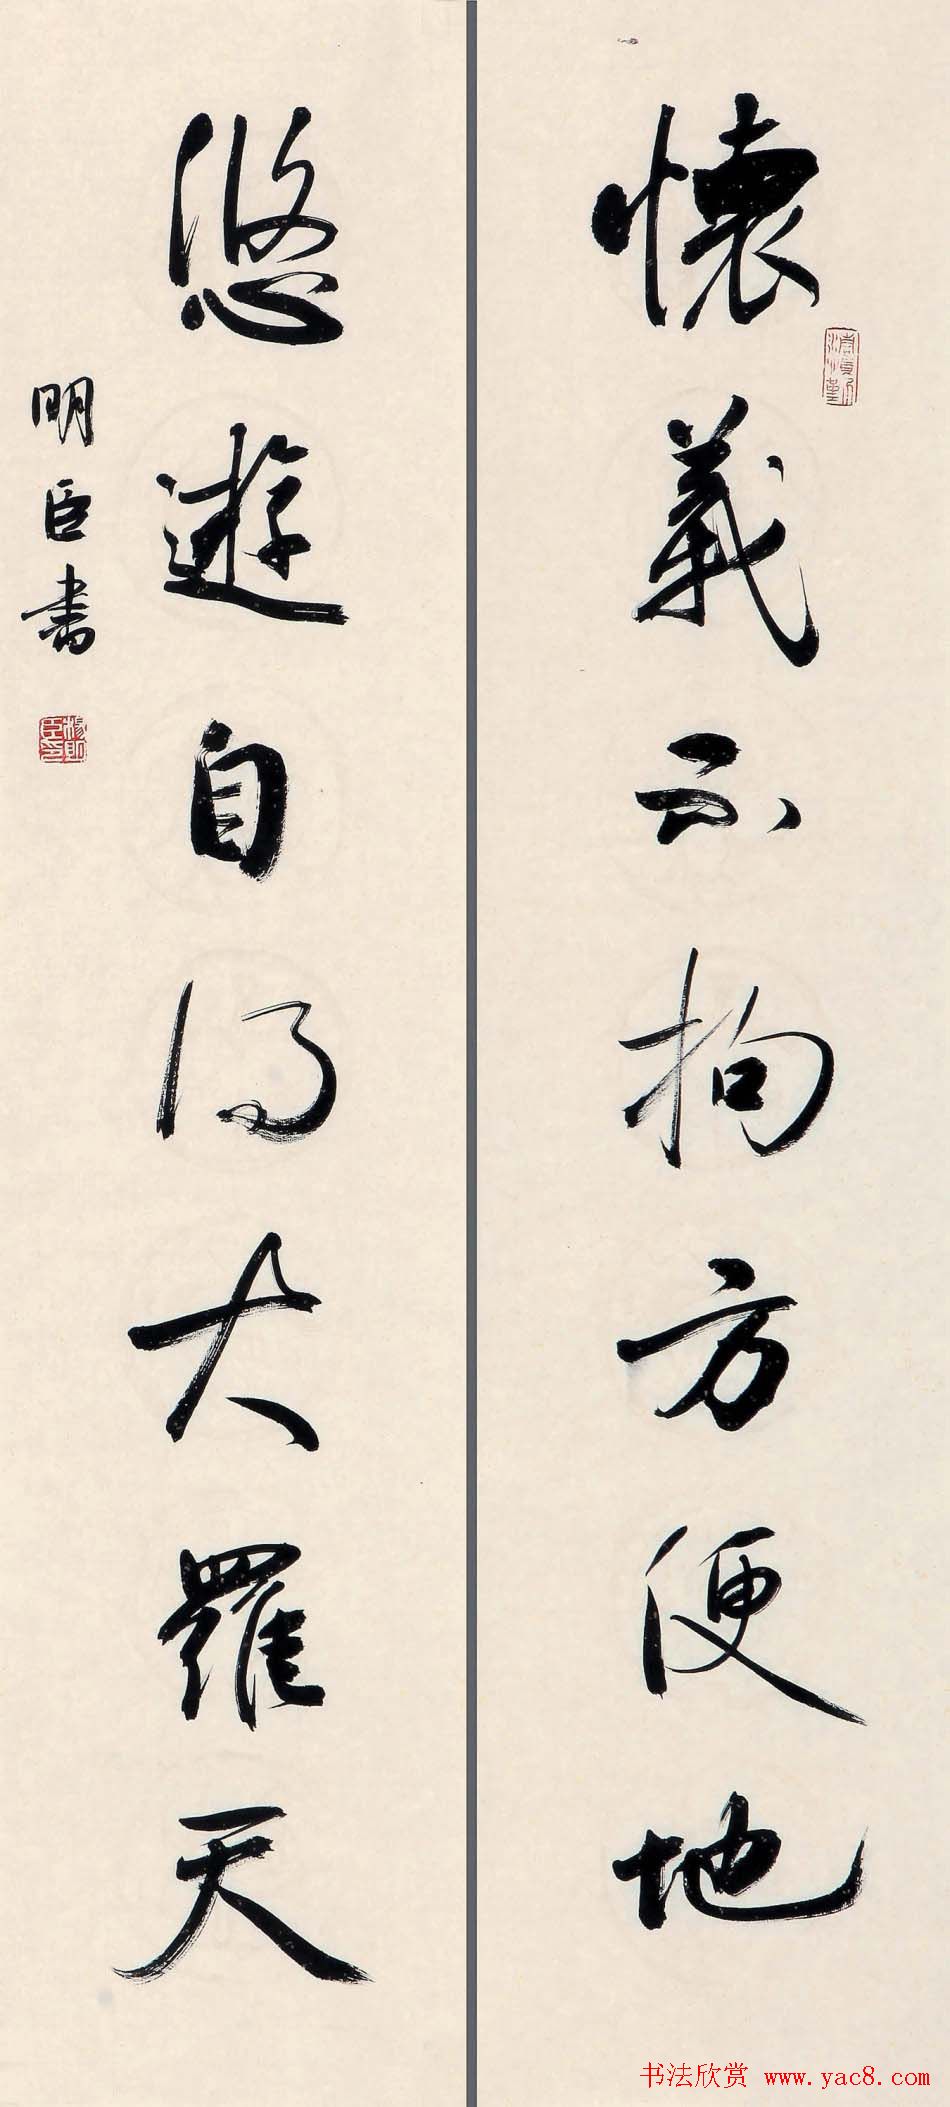 懷義不拘方便地
悠遊自得大羅天
明臣書
楊明臣印
书法欣赏 www.yac8.com